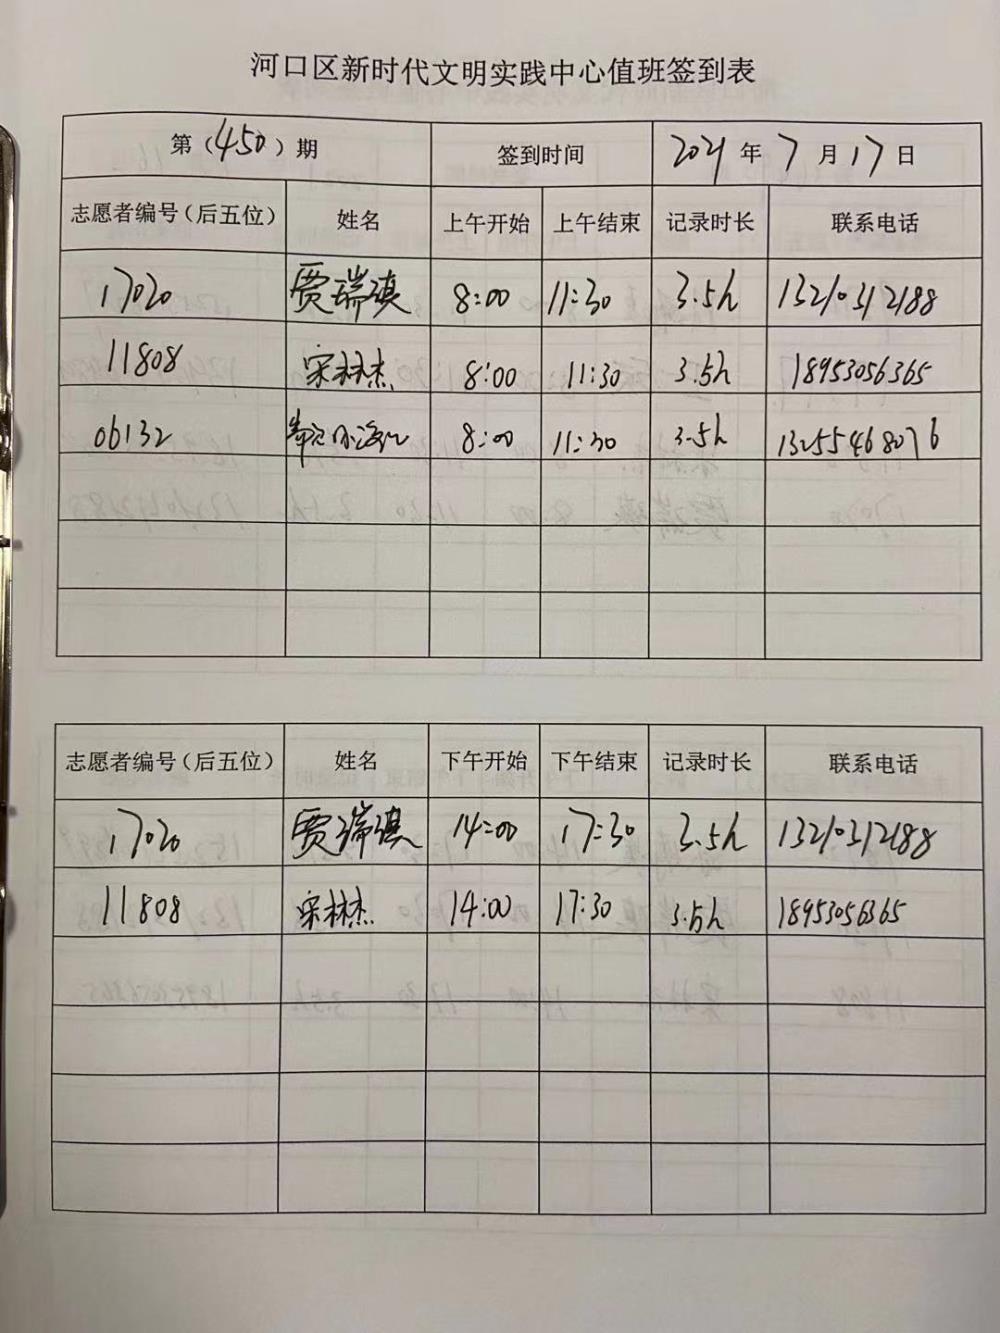 河口区新时代文明实践中心值班签到表
第（450）期 签到时间 2021 年 7 月 17 日
志愿者编号（后五位） 姓名 上午开始 上午结束 记录时长 联系电话
17020 贾瑞淇 8:00 11:30 3.5h 13210312188
11808 宋林杰 8:00 11:30 3.5h 18953056365
06132 8:00 11:30 3.5h 13255468076
志愿者编号（后五位） 姓名 下午开始 下午结束 记录时长 联系电话
17020 贾瑞淇 14:00 17:30 3.5h 13210312188
11808 宋林杰 14:00 17:30 3.5h 18953056365